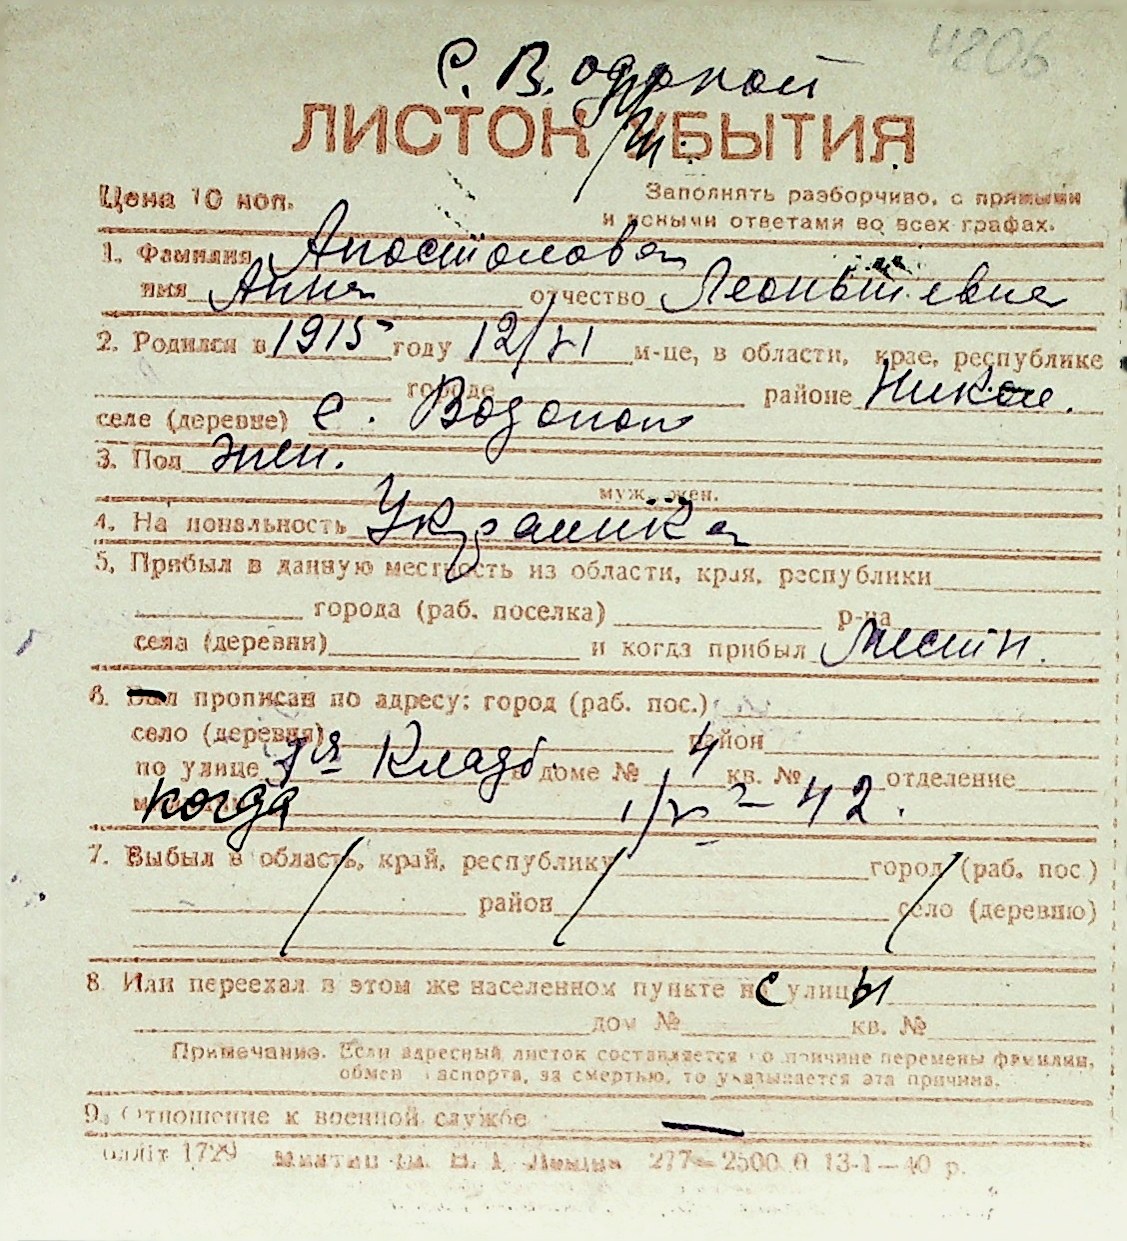 4206
С. Водопой
ЛИСТОК УБЫТИЯ
Цена 10 коп.
Заполнять разборчиво, с прямыми
и ясными ответами во всех графах.
1. Фамилия Апостолова
имя Анна отчество Леонтьевна
2. Родился в 1915 году 12/VI м-це, в области, крае, республике
городе районе Никол.
селе (деревне) с. Водопой
3. Пол жен.
муж., жен.
4. Национальность Украинка
5. Прибыл в данную местность из области, края, республики
города (раб. поселка) р-на
села (деревни) и когда прибыл местн.
6. Был прописан по адресу: город (раб. пос.)
село (деревня) район
по улице 3я Кладб. в доме № 4 кв. № отделение
когда 42.
7. Выбыл в область, край, республику город (раб. пос.)
район село (деревню)
8. Или переехал в этом же населенном пункте с улицы
дом № кв. №
Примечание. Если адресный листок составляется по причине перемены фамилии,
обмен паспорта, за смертью, то указывается эта причина.
9. Отношение к военной службе —
1729 277—2500 0 13-1—40 р.